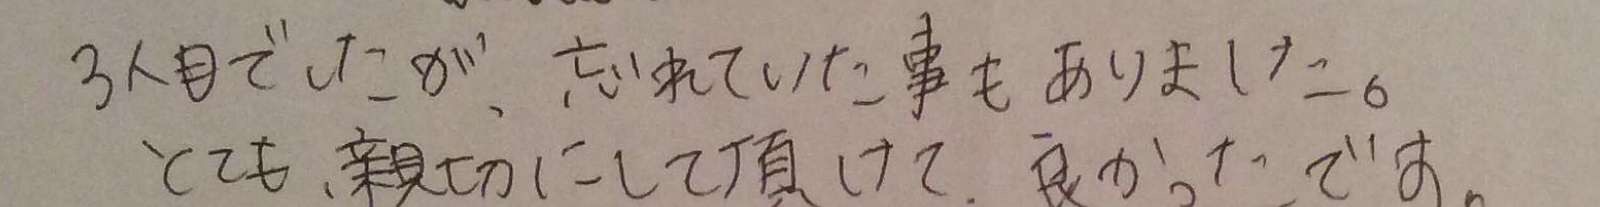 3人目でしたが、忘れていた事もありました。
とても、親切にして頂けて、良かったです。